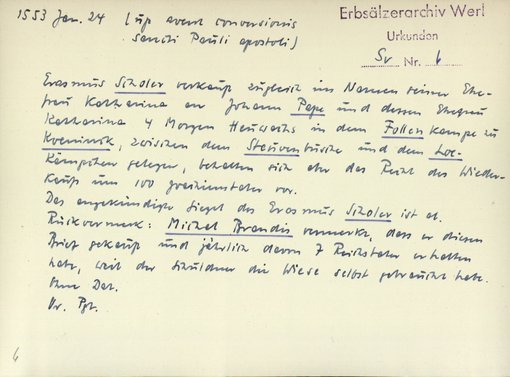 1553 Jan. 24 (up avent conversionis
sancti Pauli apostoli)
Erbsälzerarchiv Werl
Urkunden
Sv Nr. 6
Erasmus Scholer verkauft zugleich im Namen seiner Ehe-
frau Katharina an Johann Pape und dessen Ehefrau
Katharina 4 Morgen Heuwachs in dem Follenkampe zu
zwischen dem Steuvenbusche und dem Loe-
kämpchen gelegen, behalten sich aber das Recht des Wieder-
kaufs um 100 vor.
Das angekündigte Siegel des Erasmus Scholer ist ab.
Rückvermerk: Michel Brandis vermerkt, dass er diesen
Brief gekauft und jährlich davon 7 Reichstaler erhalten
habe, weil der Schuldner die Wiese selbst gebraucht habe.
Ohne Dat.
Or. Pgt.
6